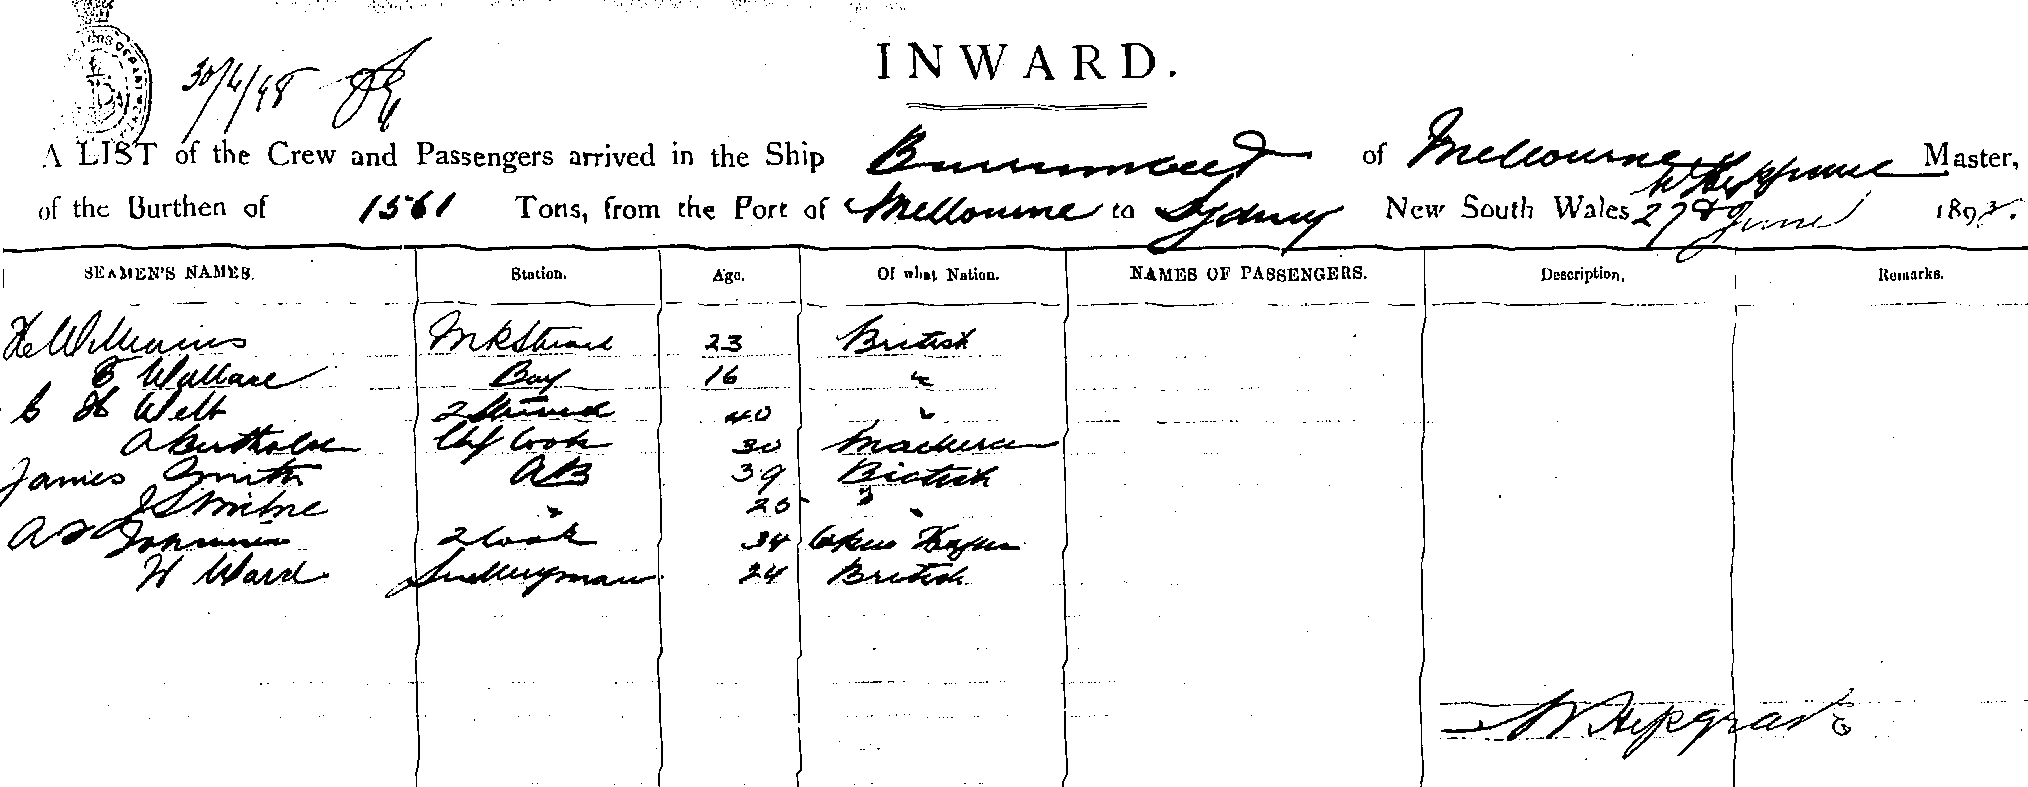 INWARD.
30/6/98
A LIST of the Crew and Passengers arrived in the Ship Burrumbeet of Melbourne W Hepgrave Master,
of the Burthen of 1561 Tons, from the Port of Melbourne to Sydney New South Wales 27th June 189
SEAMEN'S NAMES. Station. Age. Of what Nation. NAMES OF PASSENGERS. Description. Remarks.
H Williams 23 British
E Wallace Boy 16 "
C H Webb 2 Steward 40 "
A Chf Cook 30
James Smith AB 39 British
J S Milne " 25 "
A 2 Cook 34
W Ward 24 British
W Hepgrave